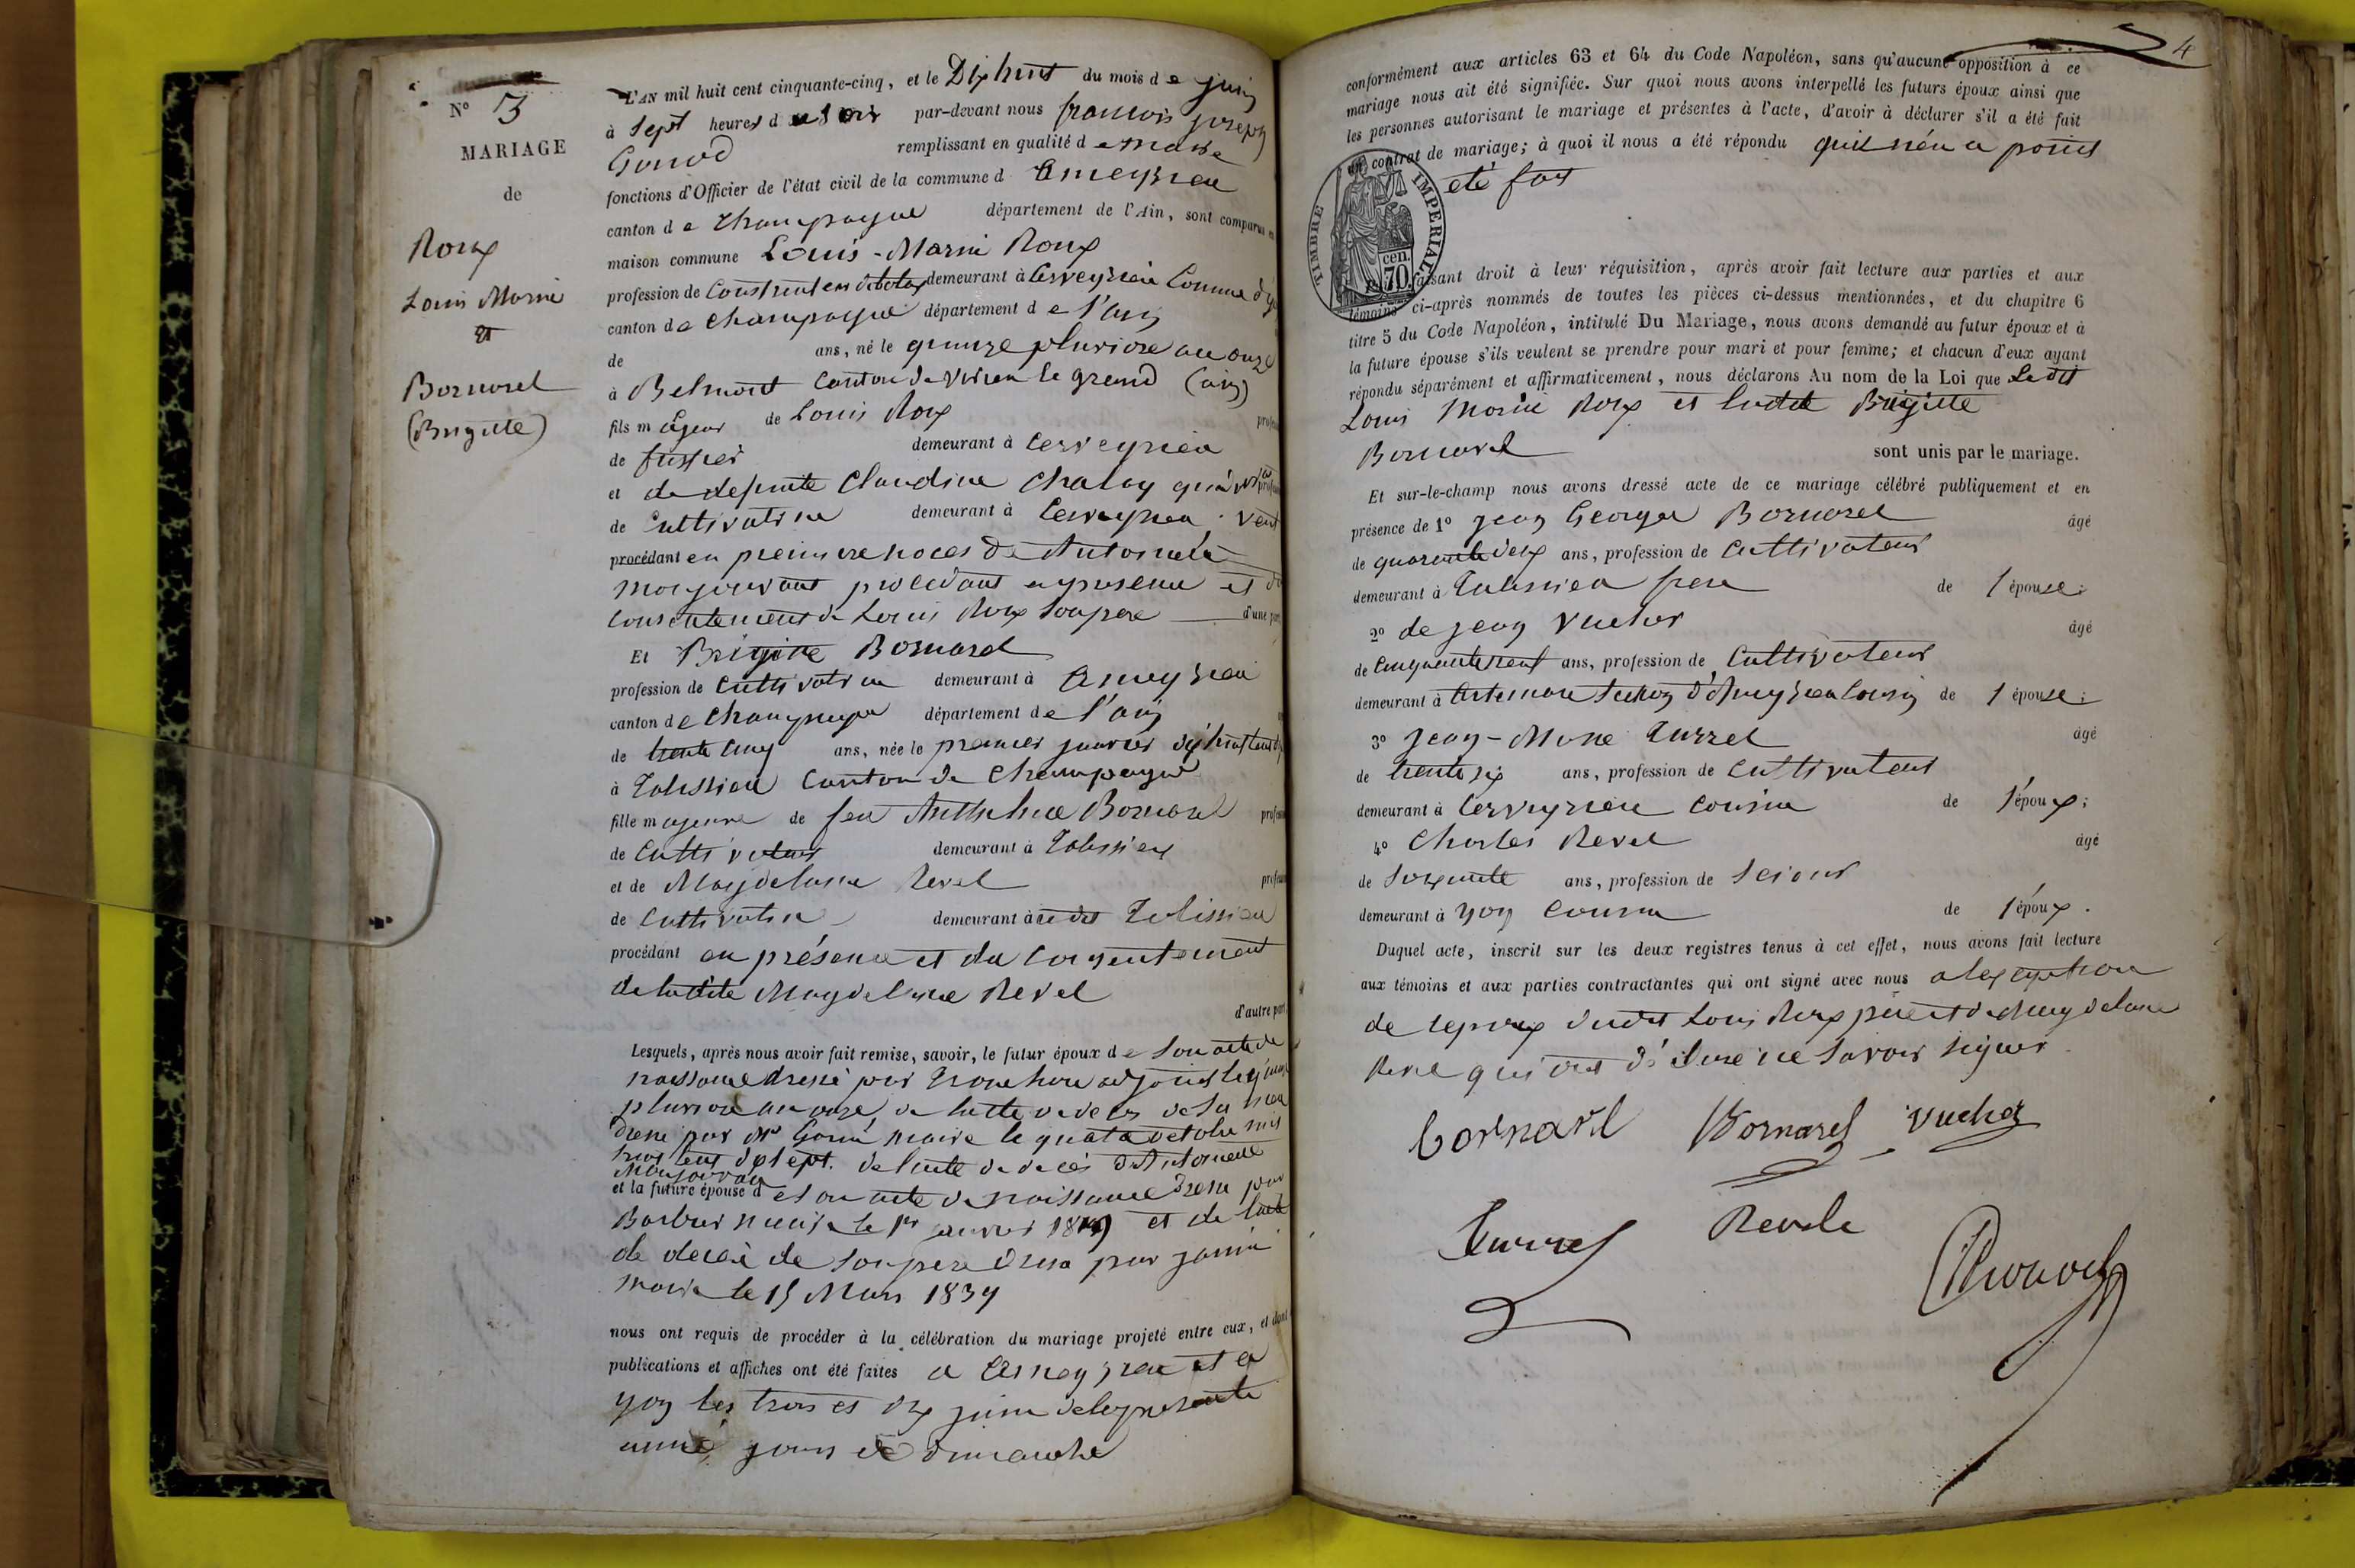 N° 3
MARIAGE
de
Roux
Louis Marie
et
Bornarel
(Brigitte)
L'AN mil huit cent cinquante-cinq, et le Dix huit du mois de juin
à Sept heures du soir par-devant nous francois joseph
remplissant en qualité de maire
fonctions d'Officier de l'état civil de la commune d Ameyzieu
canton de Champagne département de l'Ain, sont comparus en
maison commune Louis-Marie Roux
profession de demeurant à Cerveyrieu Commune d'yon
canton de Champagne département de l'ain
de ans, né le quinze pluviose an onze
à Belmont Canton de Virieu le grand (ain)
fils majeur de Louis Roux
de demeurant à Cerveyrieu
et de defunte Claudine
de Cultivatrice demeurant à Cerveyrieu; veuf
procédant en premiere noces de Antoinette
procedant en presence et du
consentement de Louis Roux son pere d'une part
Et Brigitte Bornarel
profession de Cultivatrice demeurant à Ameyzieu
canton de Champagne département de l'ain
de trente cinq ans, née le premier janvier dix huit cent
à Talissieu Canton de Champagne
fille majeure de feu Anthelme Bornarel
de Cultivateur demeurant à Talissieu
et de Magdelaine Revel
de Cultivatrice demeurant à audit Talissieu
procédant en présence et du consentement
de ladite Magdelaine Revel
d'autre part.
Lesquels, après nous avoir fait remise, savoir, le futur époux de son acte de
naissance dressé par adjoint le quinze
pluviose an onze, de lacte de deces de sa mere
dressé par Mr maire le quatre octobre mil
huit cent dix sept. de lacte de deces d'Antoinette
et la future épouse d e son acte de naissance dressé par
Barbier maire le 1er janvier et de lacte
de decès de son pere dressé par
maire le 15 Mars 1834
nous ont requis de procéder à la célébration du mariage projeté entre eux, et dont
publications et affiches ont été faites a Ameyzieu et a
yon les trois et dix juin de la presente
année jours de dimanche
4
conformément aux articles 63 et 64 du Code Napoléon, sans qu'aucune opposition à ce
mariage nous ait été signifiée. Sur quoi nous avons interpellé les futurs époux ainsi que
les personnes autorisant le mariage et présentes à l'acte, d'avoir à déclarer s'il a été fait
un contrat de mariage; à quoi il nous a été répondu quil n'en a point
eté fait
TIMBRE IMPERIAL
70 cen.
faisant droit à leur réquisition, après avoir fait lecture aux parties et aux
témoins ci-après nommés de toutes les pièces ci-dessus mentionnées, et du chapitre 6
titre 5 du Code Napoléon, intitulé Du Mariage, nous avons demandé au futur époux et à
la future épouse s'ils veulent se prendre pour mari et pour femme; et chacun d'eux ayant
répondu séparément et affirmativement, nous déclarons Au nom de la Loi que Ledit
Louis Marie Roux et ladite Brigitte
Bornarel sont unis par le mariage.
Et sur-le-champ nous avons dressé acte de ce mariage célébré publiquement et en
présence de 1° jean George Bornarel âgé
de quarante deux ans, profession de Cultivateur
demeurant à Talissieu frere de l'épouse;
2° de jean Vucher âgé
de cinquante neuf ans, profession de Cultivateur
demeurant à Artemare section d'Ameyzieu Cousin de l'épouse;
3° jean-Marie Turrel âgé
de trente six ans, profession de Cultivateur
demeurant à Cerveyrieu cousin de l'époux;
4° Charles Revel âgé
de soixante ans, profession de Scieur
demeurant à yon cousin de l'époux.
Duquel acte, inscrit sur les deux registres tenus à cet effet, nous avons fait lecture
aux témoins et aux parties contractantes qui ont signé avec nous a lexception
de lepoux dudit Louis Roux pere et de Magdelaine
Revel qui ont déclaré ne savoir signer
Bornarel Vucher
Turrel